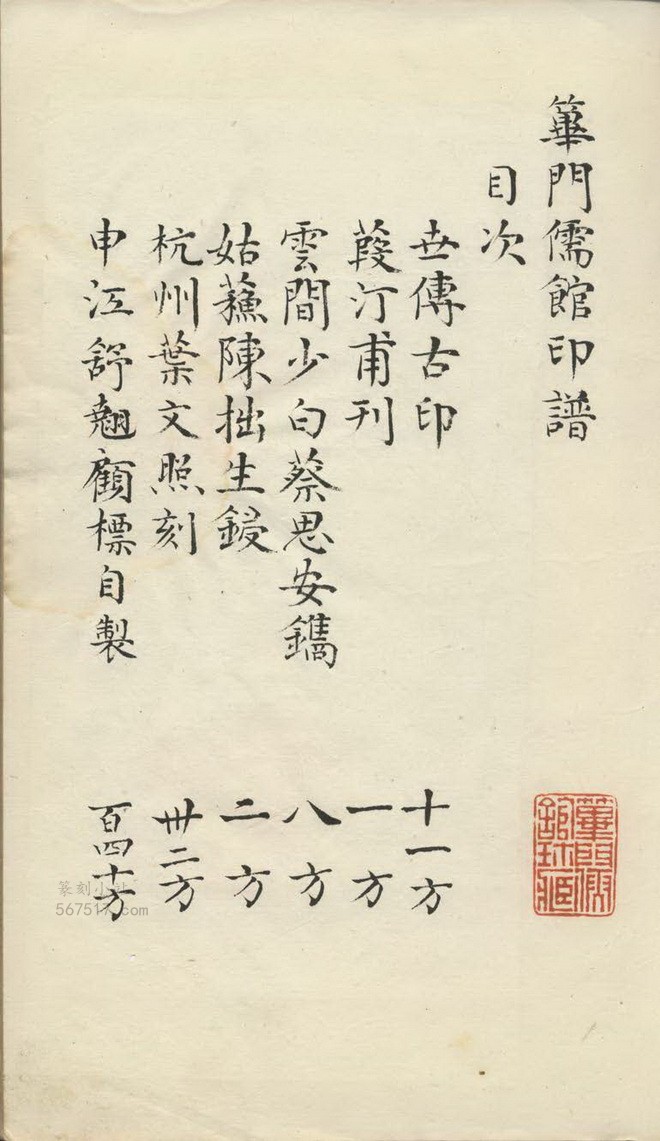 篳門儒館印譜
目次
世傳古印 十一方
葭汀甫刊 一方
雲間少白蔡思安鐫 八方
姑蘓陳拙生鋟 二方
杭州葉文照刻 卅二方
申江舒翹顧標自製 百四十方
篆刻小站
567517.com